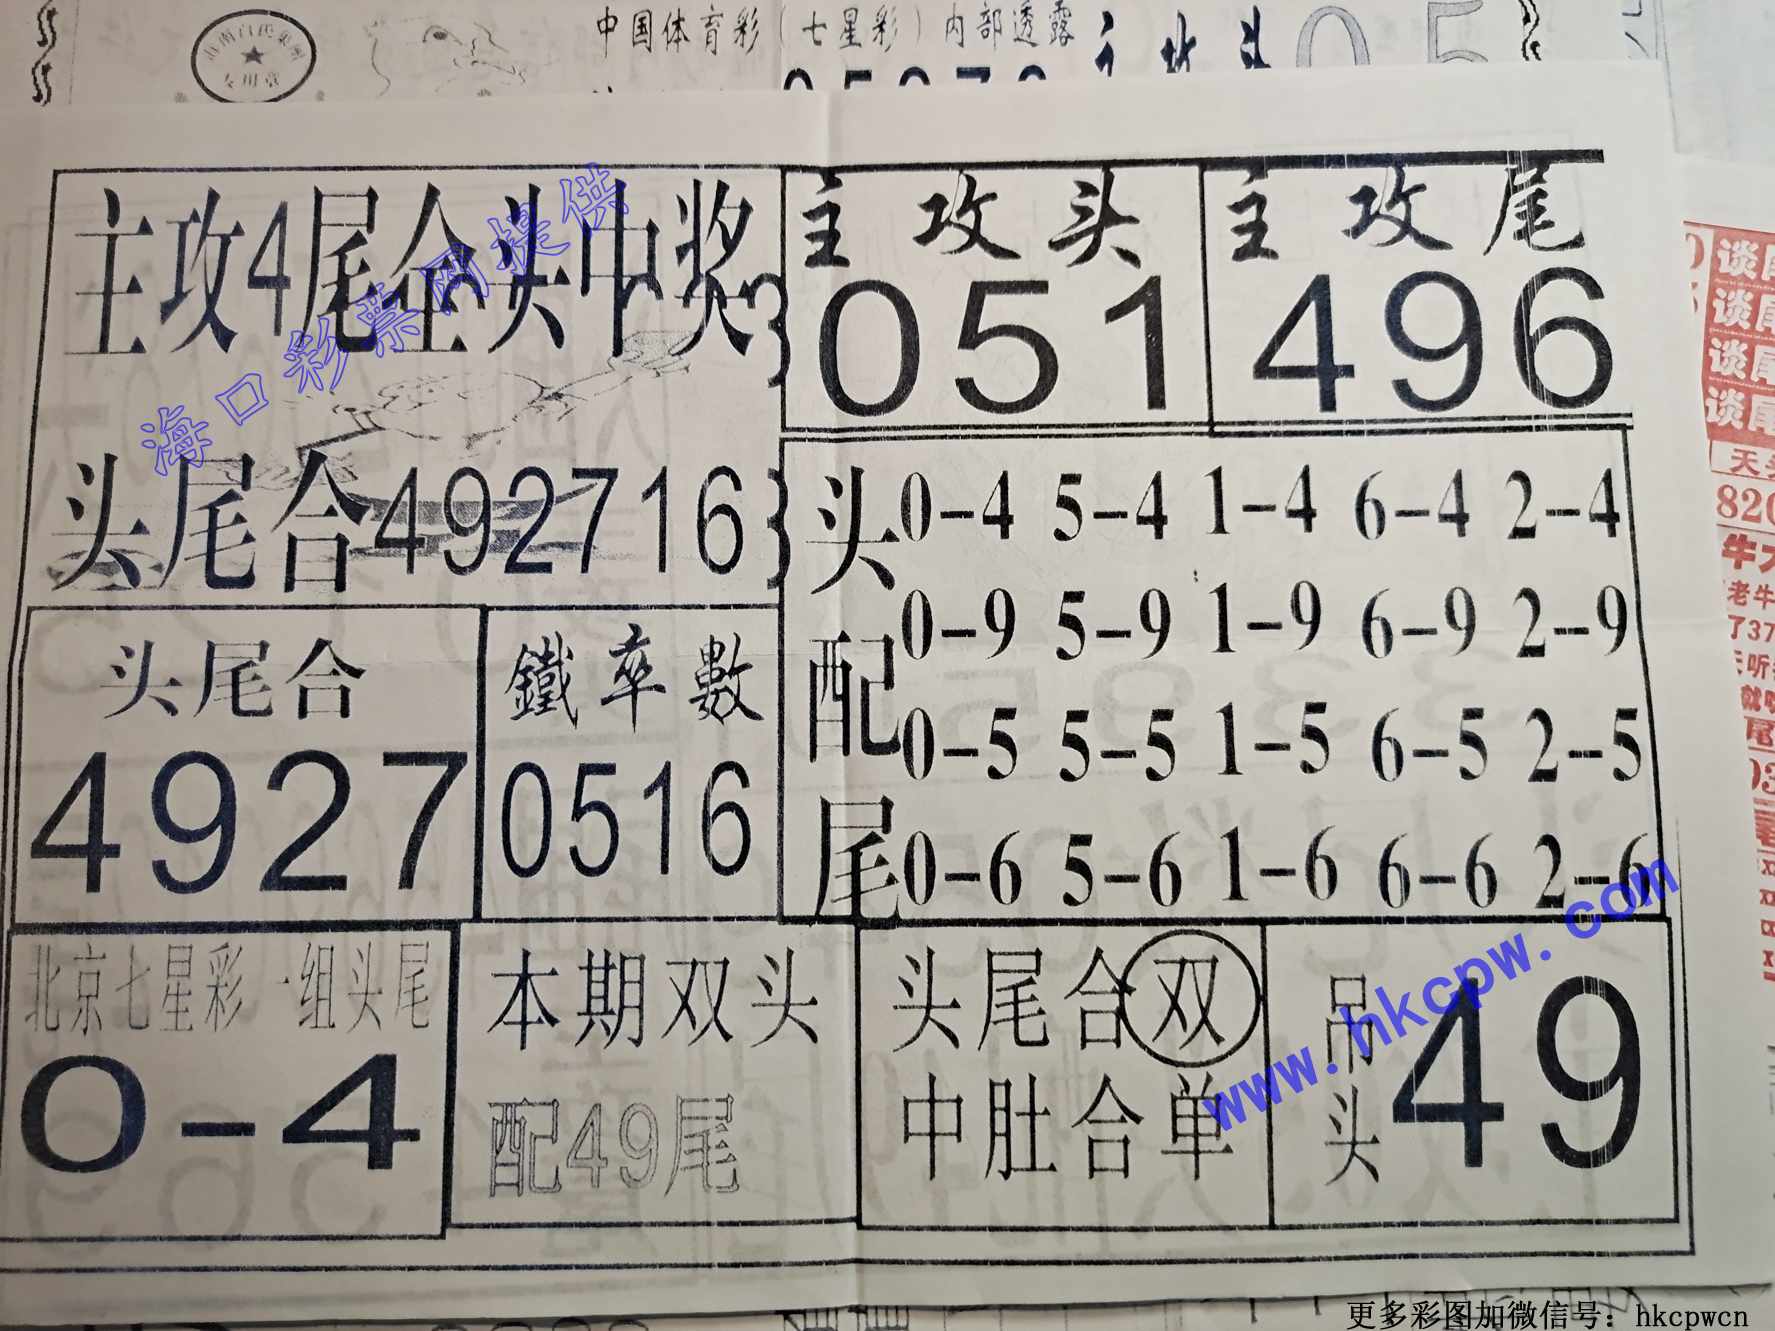 中国体育彩(七星彩)内部透露
05
主攻4尾全头中奖
海口彩票网提供
主攻头
051
主攻尾
496
头尾合492716
头尾合
4927
鐵率數
0516
头配尾
0-4 5-4 1-4 6-4 2-4
0-9 5-9 1-9 6-9 2-9
0-5 5-5 1-5 6-5 2-5
0-6 5-6 1-6 6-6 2-6
北京七星彩一组头尾
0-4
本期双头
配49尾
头尾合双
中肚合单
吊头
49
www.hkcpw.com
谈尾
谈尾
谈尾
谈尾
820
老牛
更多彩图加微信号：hkcpwcn